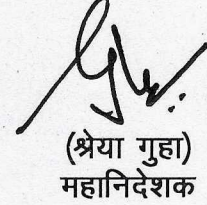 (श्रेया गुहा)
महानिदेशक